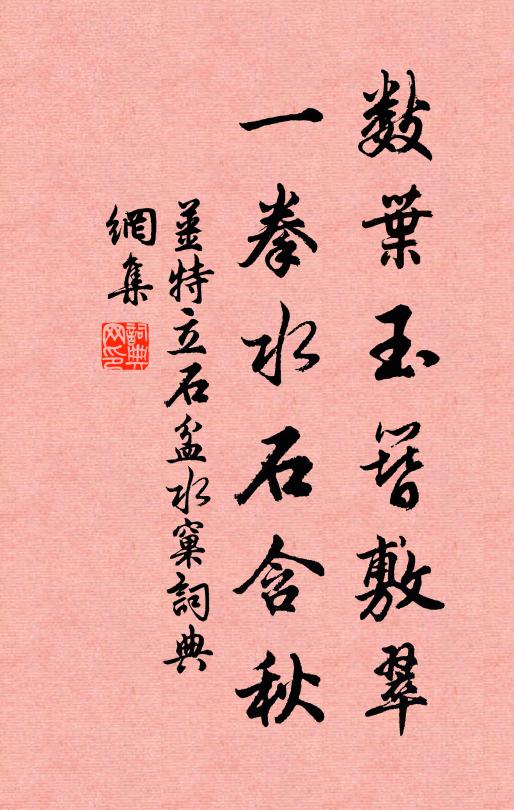 數葉玉簪敷翠
一拳水石含秋
姜特立石盆水窠詞典
網集
詞典
网印